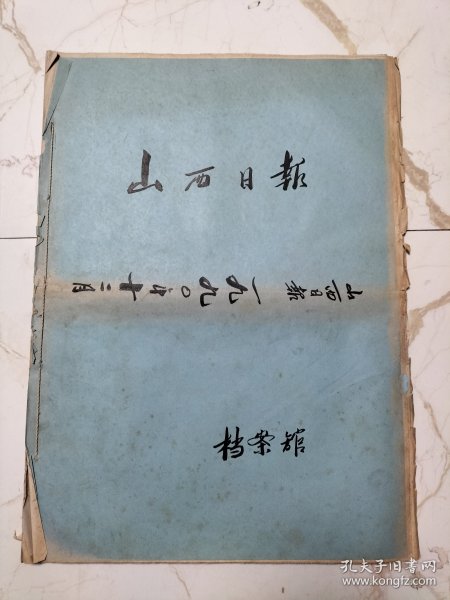 山西日報
山西日报 一九九〇年十二月
档案館
孔夫子旧书网
www.kongfz.com